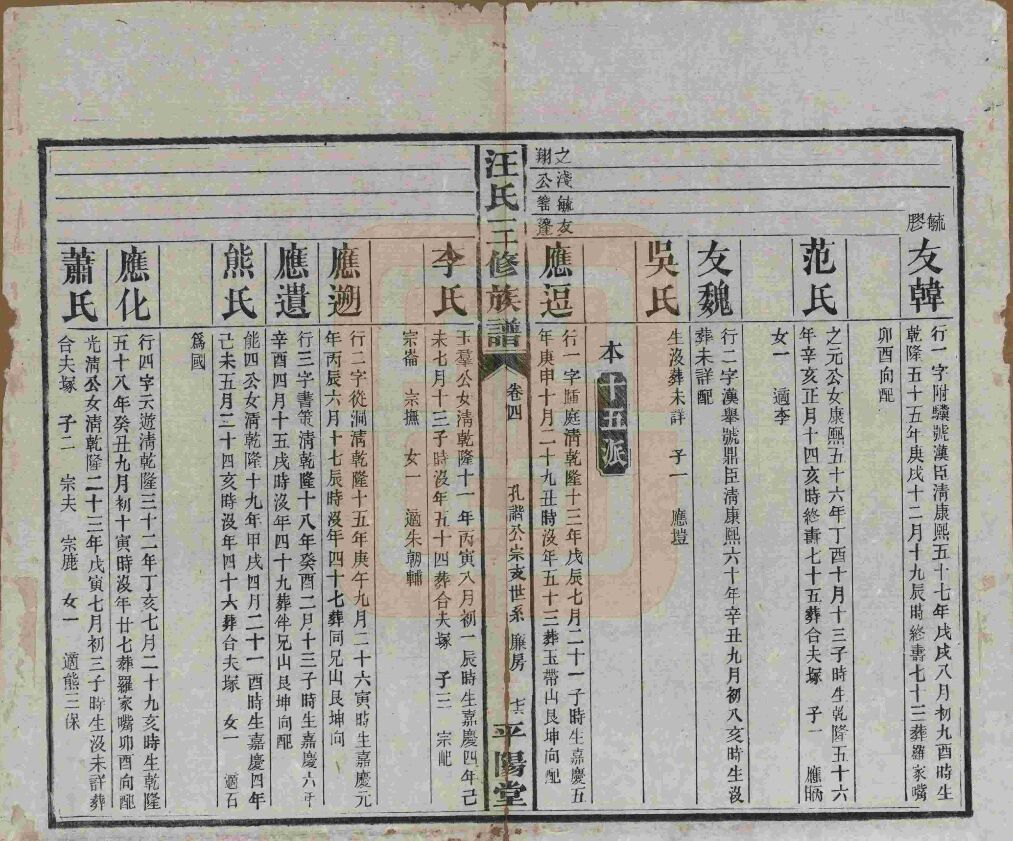 毓膠
友韓
行一字附驥號漢臣清康熙五十七年戊戌八月初九酉時生
乾隆五十五年庚戌十二月十九辰時終壽七十三葬羅家嘴
卯酉向配
范氏
之元公女康熙五十六年丁酉十月十三子時生乾隆五十六
年辛亥正月十四亥時終壽七十五葬合夫塚 子一 應昞
女一 適李
友魏
行二字漢舉號鼎臣清康熙六十年辛丑九月初八亥時生沒
葬未詳配
吳氏
生沒葬未詳 子一 應塏
本十五派
之淺毓友
翔公 蓬
應逗
行一字 庭清乾隆十三年戊辰七月二十一子時生嘉慶五
年庚申十月二十九丑時沒年五十三葬玉帶山艮坤向配
汪氏三修族譜
卷四
孔諧公宗支世系 廉房
平陽堂
李氏
玉羣公女清乾隆十一年丙寅八月初一辰時生嘉慶四年己
未七月十三子時沒年五十四葬合夫塚 子三 宗屺
宗崙 宗撫 女一 適朱朝輔
應遡
行二字從洞清乾隆十五年庚午九月二十六寅時生嘉慶元
年丙辰六月十七辰時沒年四十七葬同兄山艮坤向
應遺
行三字書策清乾隆十八年癸酉二月十三子時生嘉慶六年
辛酉四月十五戌時沒年四十九葬伴兄山艮坤向配
熊氏
能四公女清乾隆十九年甲戌四月二十一酉時生嘉慶四年
己未五月二十四亥時沒年四十六葬合夫塚 女一 適石
爲國
應化
行四字天遊清乾隆三十二年丁亥七月二十九亥時生乾隆
五十八年癸丑九月初十寅時沒年廿七葬羅家嘴卯酉向配
蕭氏
光清公女清乾隆二十三年戊寅七月初三子時生沒未詳葬
合夫塚 子二 宗夫 宗鹿 女一 適熊三保